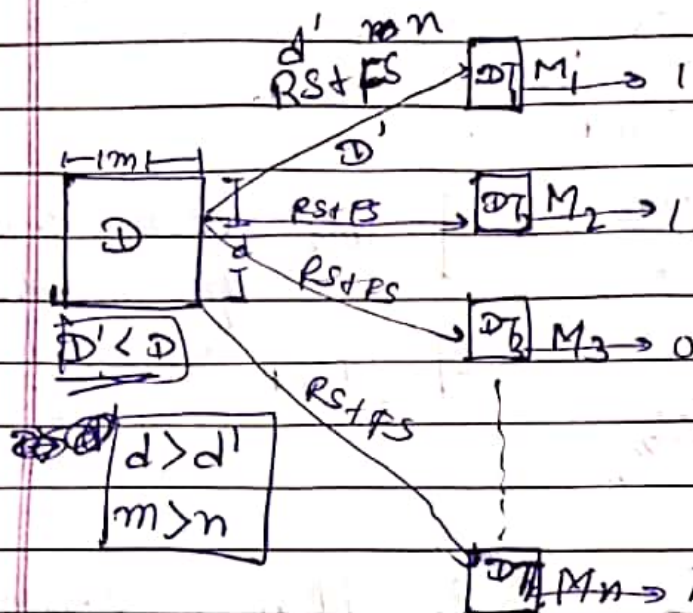 d' m n
RS + FS
DT M1 → 1
D'
|—m—|
D
d
RS + FS
DT M2 → 1
RS + FS
DT M3 → 0
D' < D
RS + FS
d > d'
m > n
DT Mn →